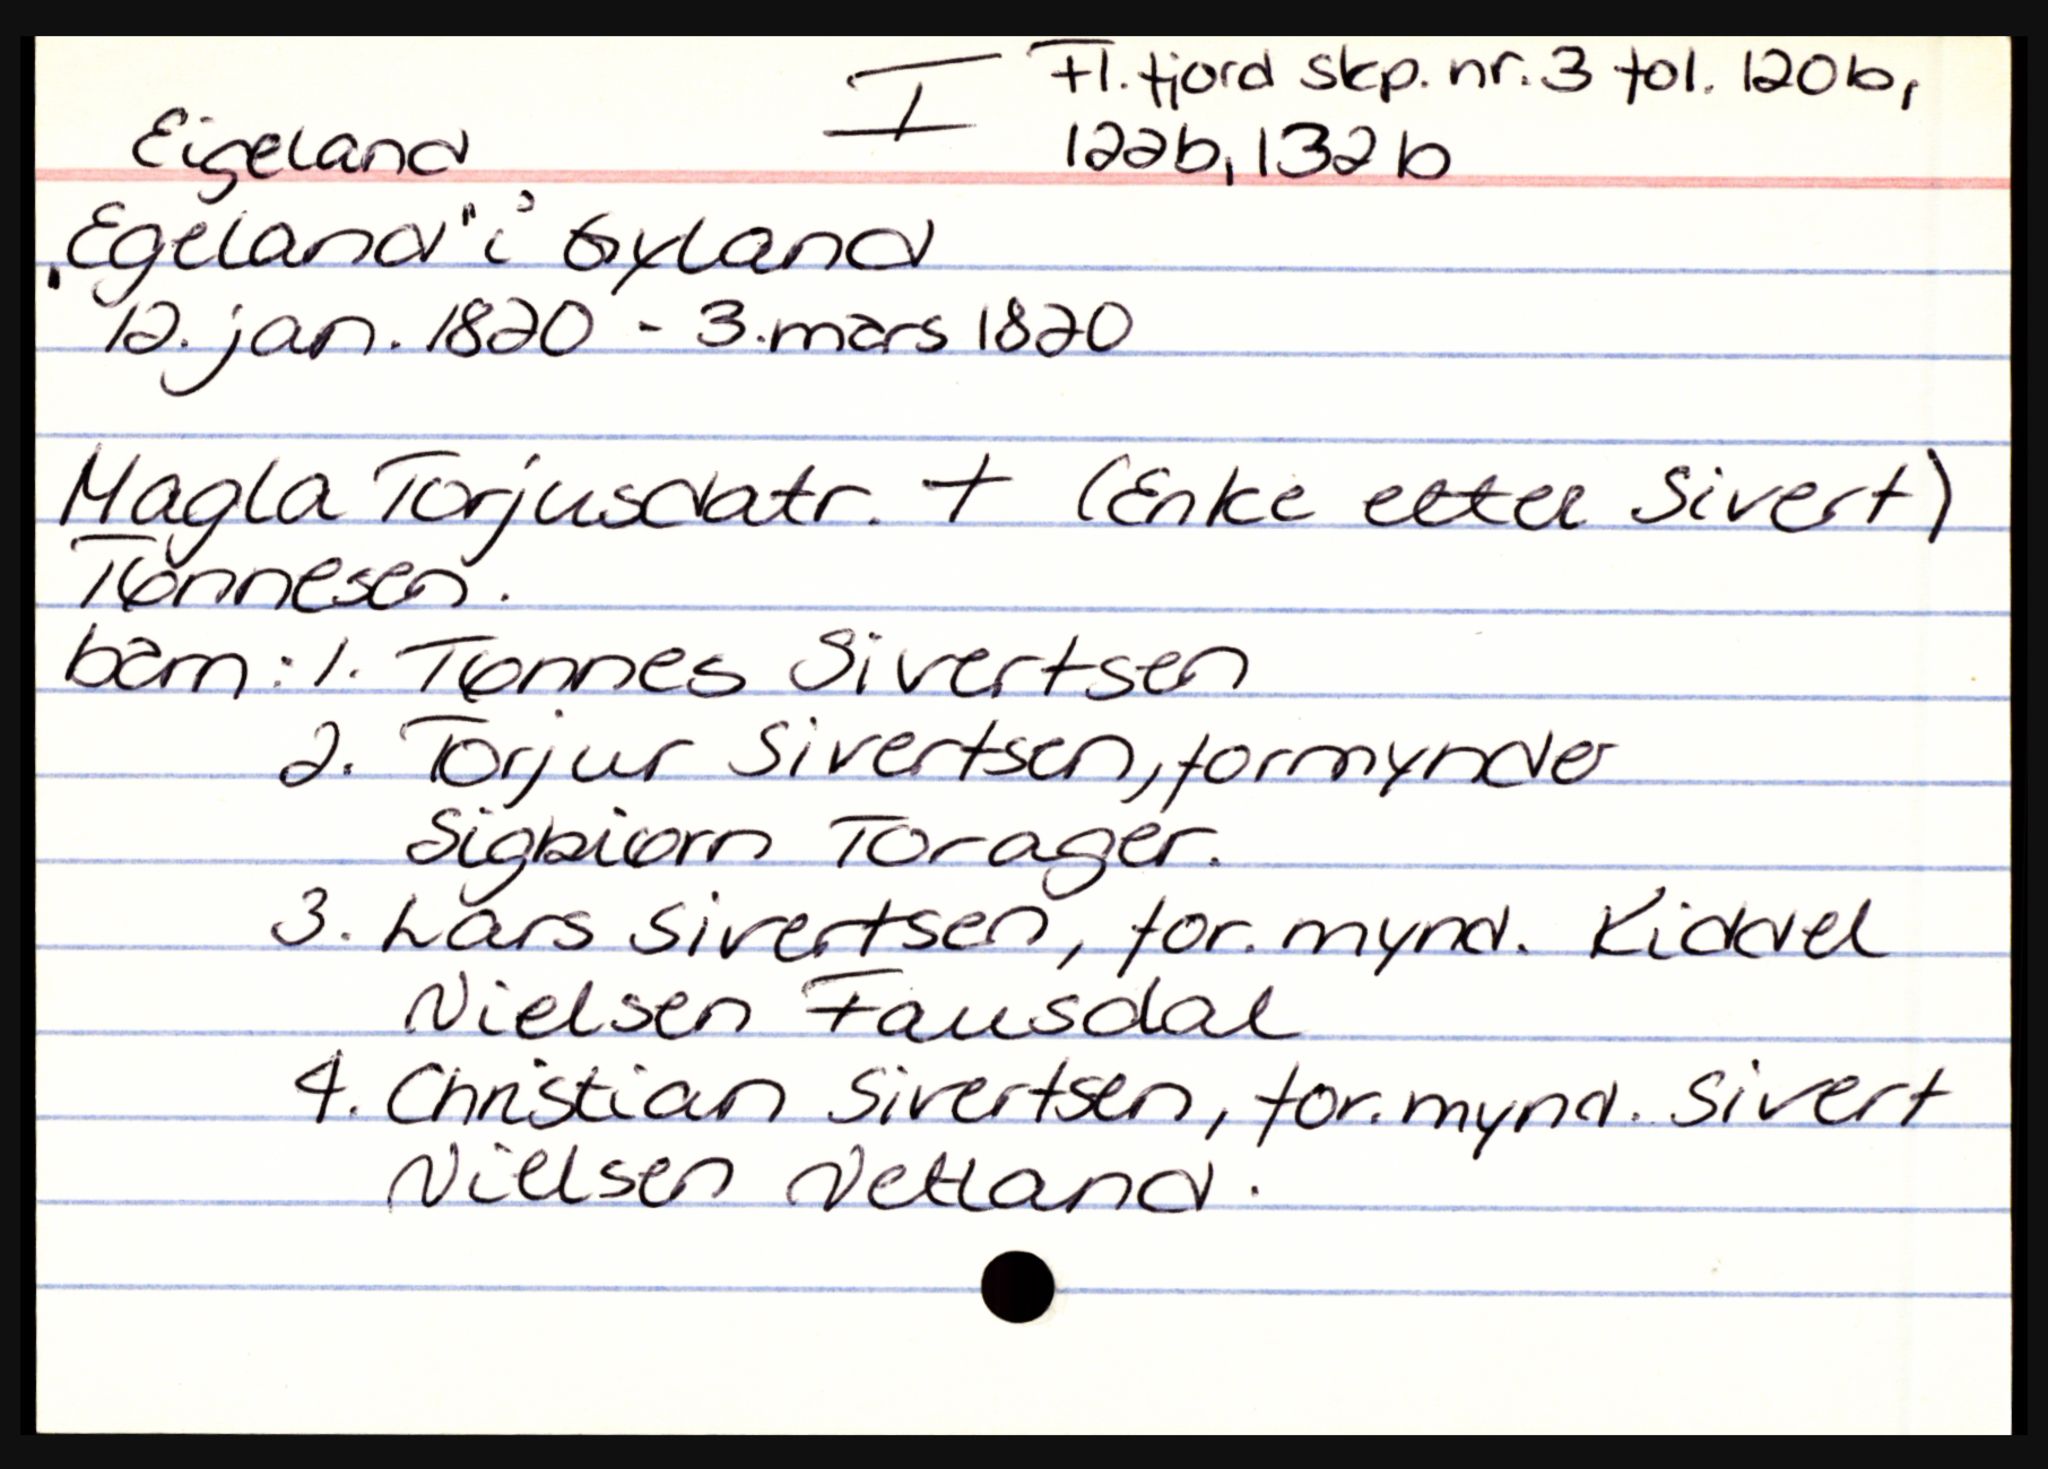 I Fl.fjord skp. nr. 3 fol. 120b,
Eigeland 122b, 132b
„Egeland" i Gyland
12. jan. 1820 - 3. mars 1820
Magla Torjusdatr. + (Enke etter Sivert)
Tønnesen.
barn: 1. Tønnes Sivertsen
2. Torjur Sivertsen, formynder
Sigbiørn Torager.
3. Lars Sivertsen, for.mynd. Kiddel
Nielsen Fausdal
4. Christian Sivertsen, for.mynd. Sivert
Nielsen Netland.